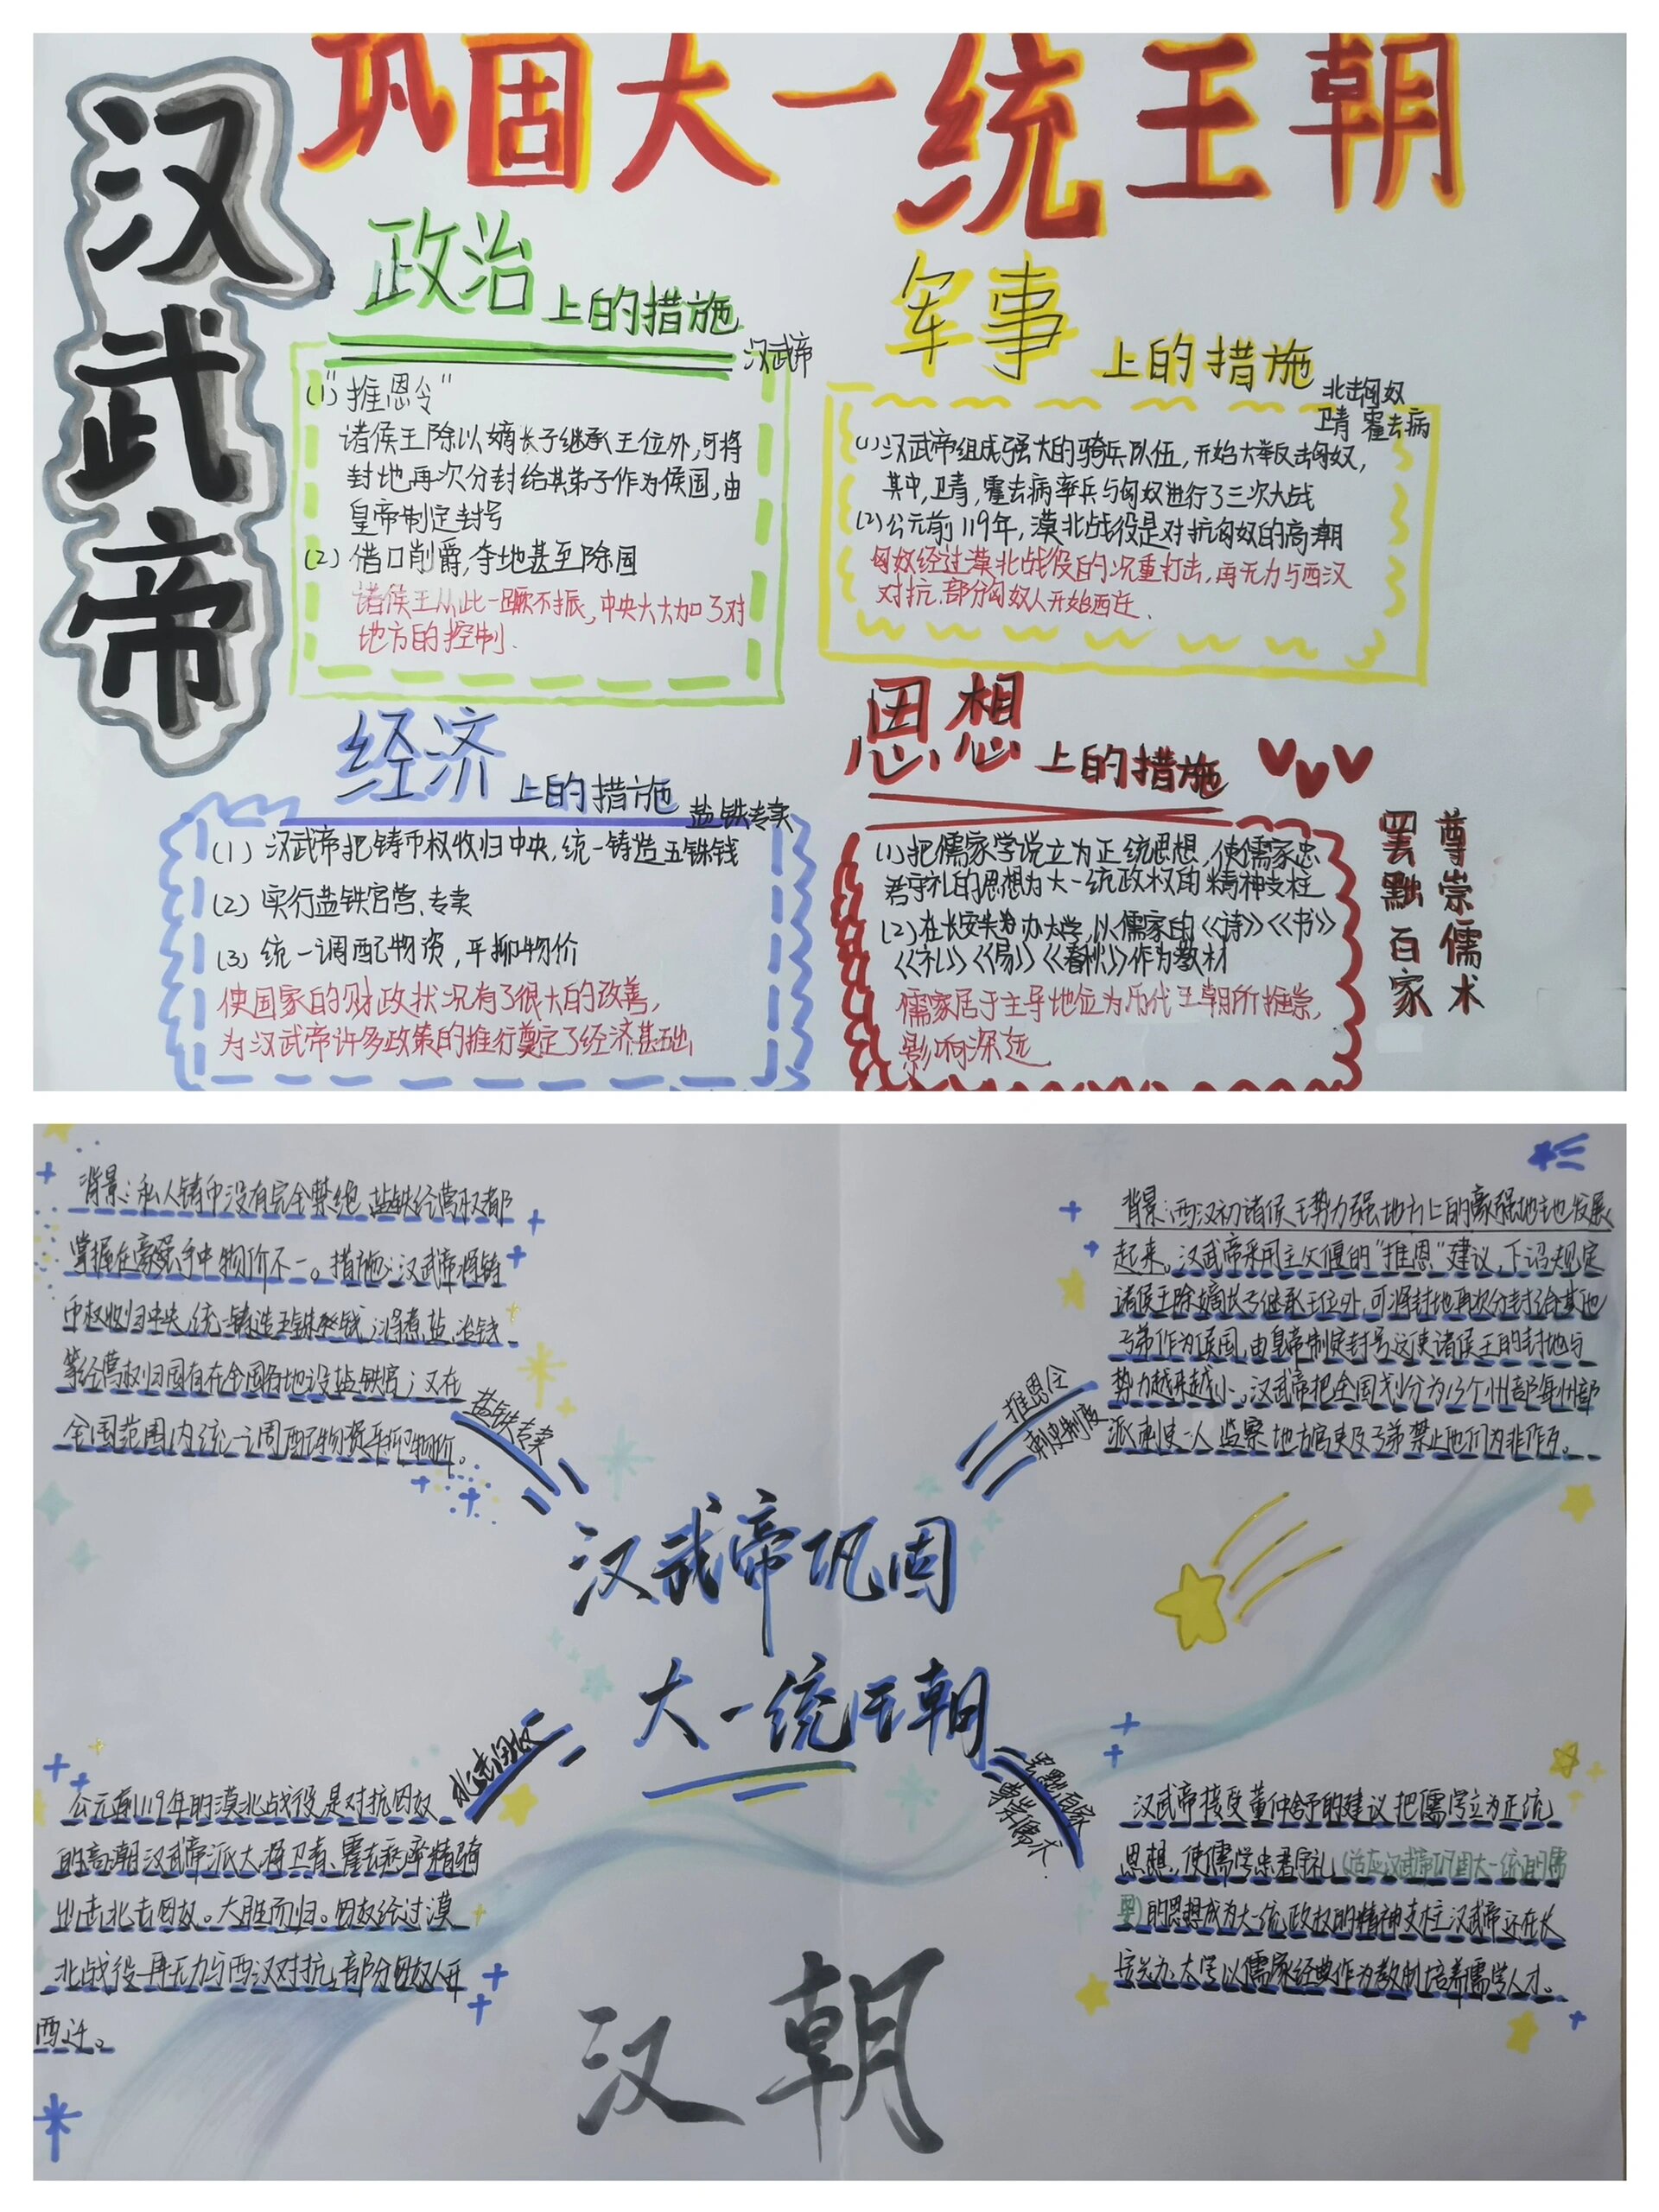 巩固大一统王朝
汉武帝
政治上的措施
汉武帝
(1)"推恩令"
诸侯王除以嫡长子继承王位外,可将
封地再次分封给其弟子作为侯国,由
皇帝制定封号
(2)借口削爵,夺地甚至除国
诸侯王从此一蹶不振,中央大大加了对
地方的控制.
军事上的措施
北击匈奴
卫青 霍去病
(1)汉武帝组成强大的骑兵队伍,开始大举反击匈奴,
其中,卫青,霍去病率兵与匈奴进行了三次大战
(2)公元前119年,漠北战役是对抗匈奴的高潮
匈奴经过漠北战役的沉重打击,再无力与西汉
对抗.部分匈奴人开始西迁.
经济上的措施
盐铁专卖
(1)汉武帝把铸币权收归中央,统一铸造五铢钱
(2)实行盐铁官营、专卖
(3)统一调配物资,平抑物价
使国家的财政状况有了很大的改善,
为汉武帝许多政策的推行奠定了经济基础
思想上的措施
(1)把儒家学说立为正统思想,使儒家忠
君守礼的思想为大一统政权的精神支柱
(2)在长安 办太学,以儒家的《诗》《书》
《礼》《易》《春秋》作为教材
儒家居于主导地位为历代王朝所推崇,
影响深远
尊崇儒术
罢黜百家
背景:私人铸币没有完全禁绝,盐铁经营权都
掌握在豪强手中物价不一。措施:汉武帝将铸
币权收归中央,统一铸造五铢 钱;将煮盐、冶铁
等经营权归国有在全国各地设盐铁官;又在
全国范围内统一调配物资平抑物价。
盐铁专卖
背景:西汉初诸侯王势力强地方上的豪强地主也发展
起来。汉武帝采用主父偃的"推恩"建议,下诏规定
诸侯王除嫡长子继承王位外,可将封地再次分封给其他
子弟作为侯国,由皇帝制定封号这使诸侯王的封地与
势力越来越小。汉武帝把全国划分为13个州部每州部
派刺史一人 监察地方官吏及子弟禁止他们为非作歹。
推恩令
刺史制度
汉武帝巩固
大一统王朝
北击匈奴
公元前119年的漠北战役是对抗匈奴
的高潮汉武帝派大将卫青、霍去病率精骑
出击北击匈奴。大胜而归。匈奴经过漠
北战役再无力与西汉对抗,部分匈奴人开
西迁。
罢黜百家
尊崇儒术
汉武帝接受董仲舒的建议把儒学立为正统
思想,使儒学忠君守礼(适应汉武帝巩固大一统的需
要)的思想成为大一统政权的精神支柱汉武帝还在长
安兴办太学以儒家经典作为教材培养儒学人才。
汉朝